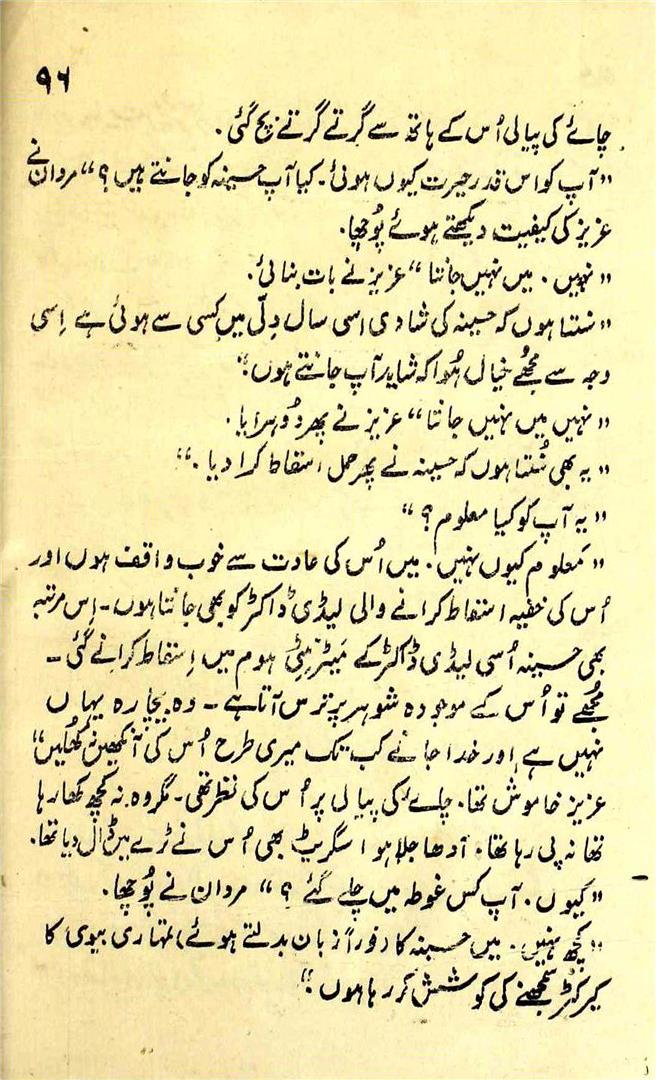 ۹۶
چائے کی پیالی اُس کے ہاتھ سے گرتے گرتے بچ گئی۔
”آپ کو اس قدر حیرت کیوں ہوئی۔ کیا آپ حسینہ کو جانتے ہیں؟“ مردان نے
عزیز کی کیفیت دیکھتے ہوئے پُوچھا۔
”نہیں۔ میں نہیں جانتا“ عزیز نے بات بنائی۔
”سُنتا ہوں کہ حسینہ کی شادی اسی سال دِلّی میں کِسی سے ہوئی ہے اِسی
وجہ سے مجھے خیال ہُوا کہ شاید آپ جانتے ہوں۔“
”نہیں میں نہیں جانتا“ عزیز نے پھر دُوہرایا۔
”یہ بھی سُنتا ہوں کہ حسینہ نے پھر حمل اسقاط کرا دیا۔“
”یہ آپ کو کیا معلوم؟“
”مَعلوم کیوں نہیں۔ میں اُس کی عادت سے خوب واقف ہوں اور
اُس کی خفیہ اسقاط کرانے والی لیڈی ڈاکٹر کو بھی جانتا ہوں۔ اِس مرتبہ
بھی حسینہ اُسی لیڈی ڈاکٹر کے مَیٹرنیٹی ہوم میں اِسقاط کرانے گئی۔
مجُھے تو اُس کے موجودہ شوہر پر ترس آتا ہے۔ وہ بیچارہ یہاں
نہیں ہے اور خدا جانے کب تک میری طرح اُس کی آنکھیں نہ کُھلیں“
عزیز خاموش تھا۔ چائے کی پیالی پر اُس کی نظر تھی۔ مگر وہ نہ کچھ کھا رہا
تھا نہ پی رہا تھا۔ آدھا جلا ہوا سگریٹ بھی اُس نے ٹرے میں ڈال دیا تھا۔
”کیوں۔ آپ کس غوطہ میں چلے گئے؟“ مردان نے پُوچھا۔
”کچھ نہیں۔ میں حسینہ کا (فوراً زبان بدلتے ہوئے) تمہاری بیوی کا
کیرکٹر سمجھنے کی کوشش کر رہا ہوں۔“